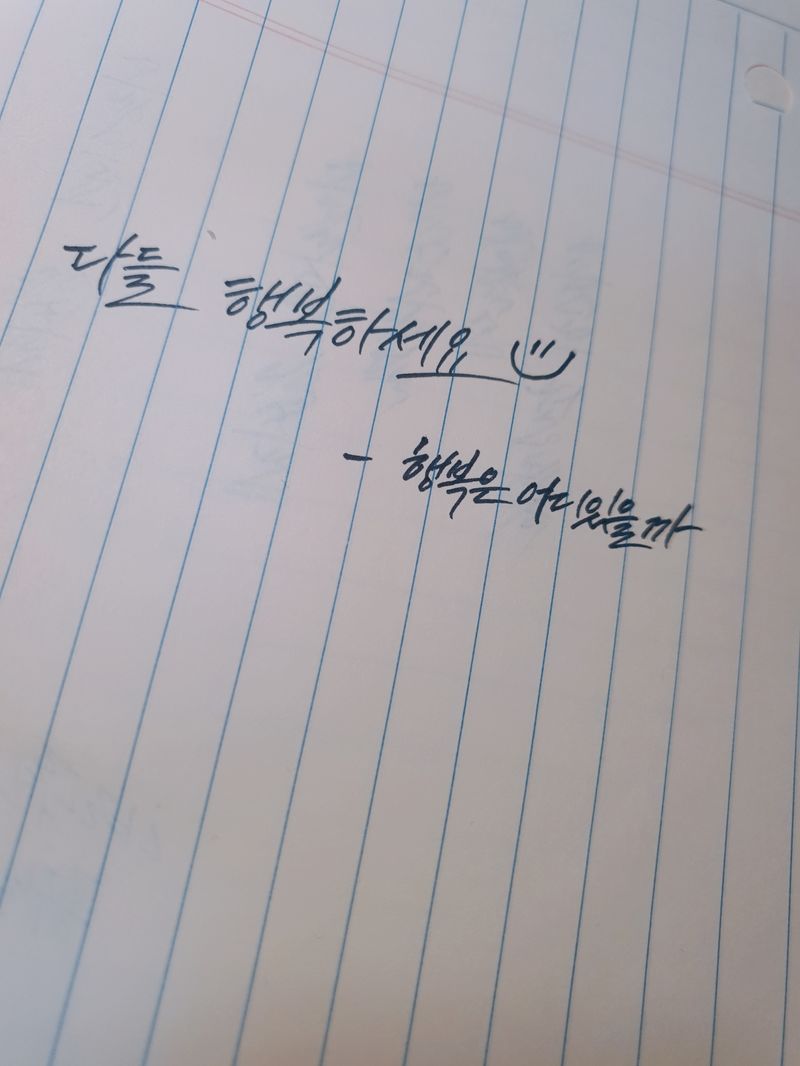 다들 행복하세요
- 행복은 어디있을까